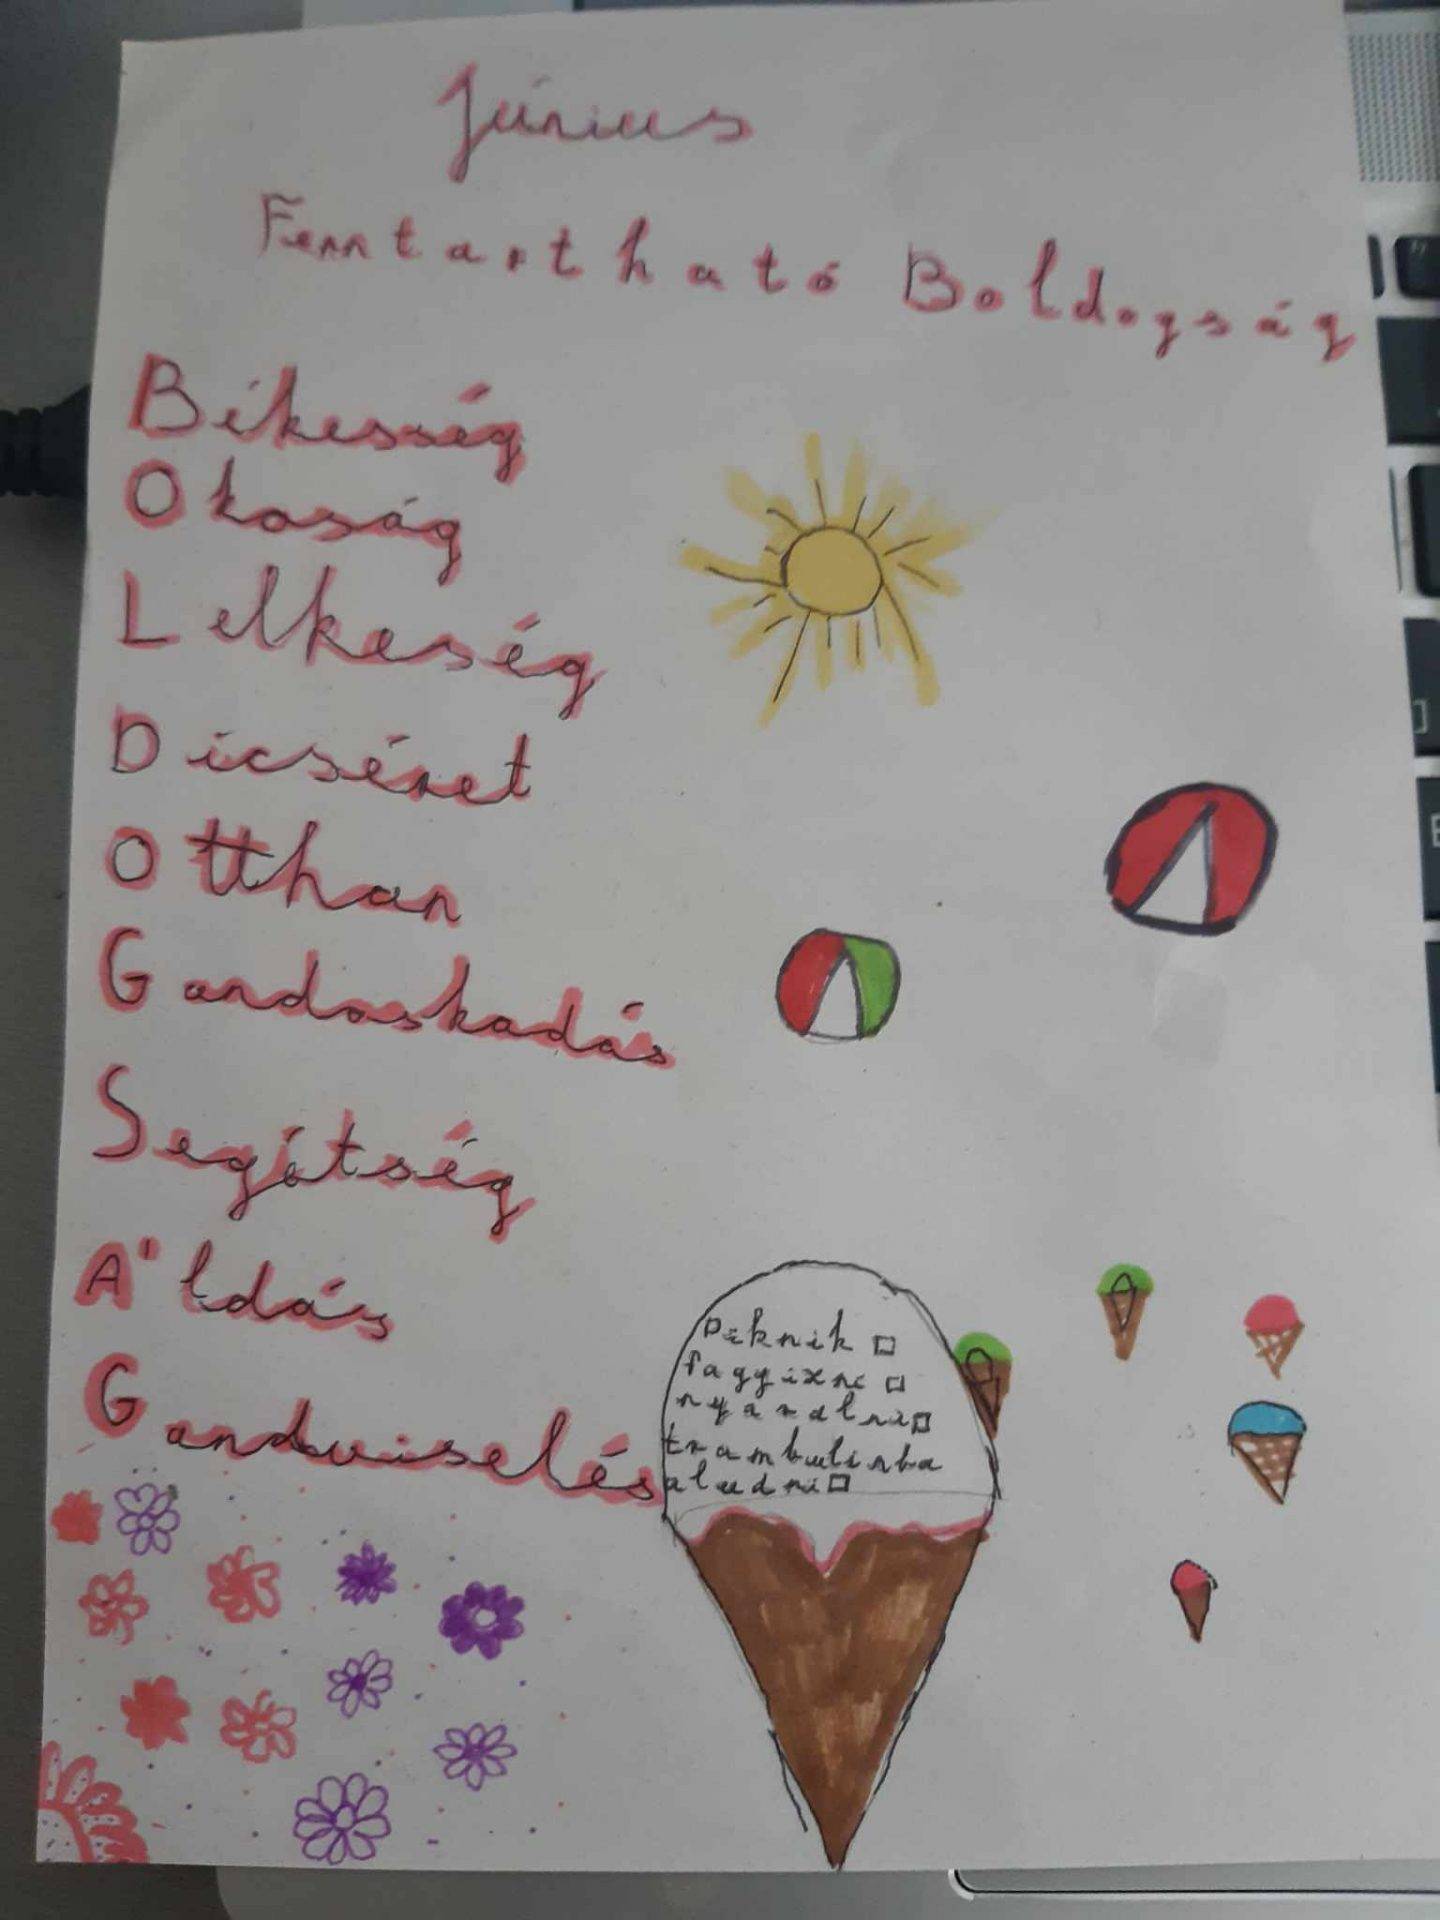 Június
Fenntartható Boldogság
Békesség
Okosság
Lelkeség
Dicséret
Otthan
Gondoskadás
Segítség
Áldás
Gondviselés
Piknik
fagyizni
nyaralni
trambulinba
aludni